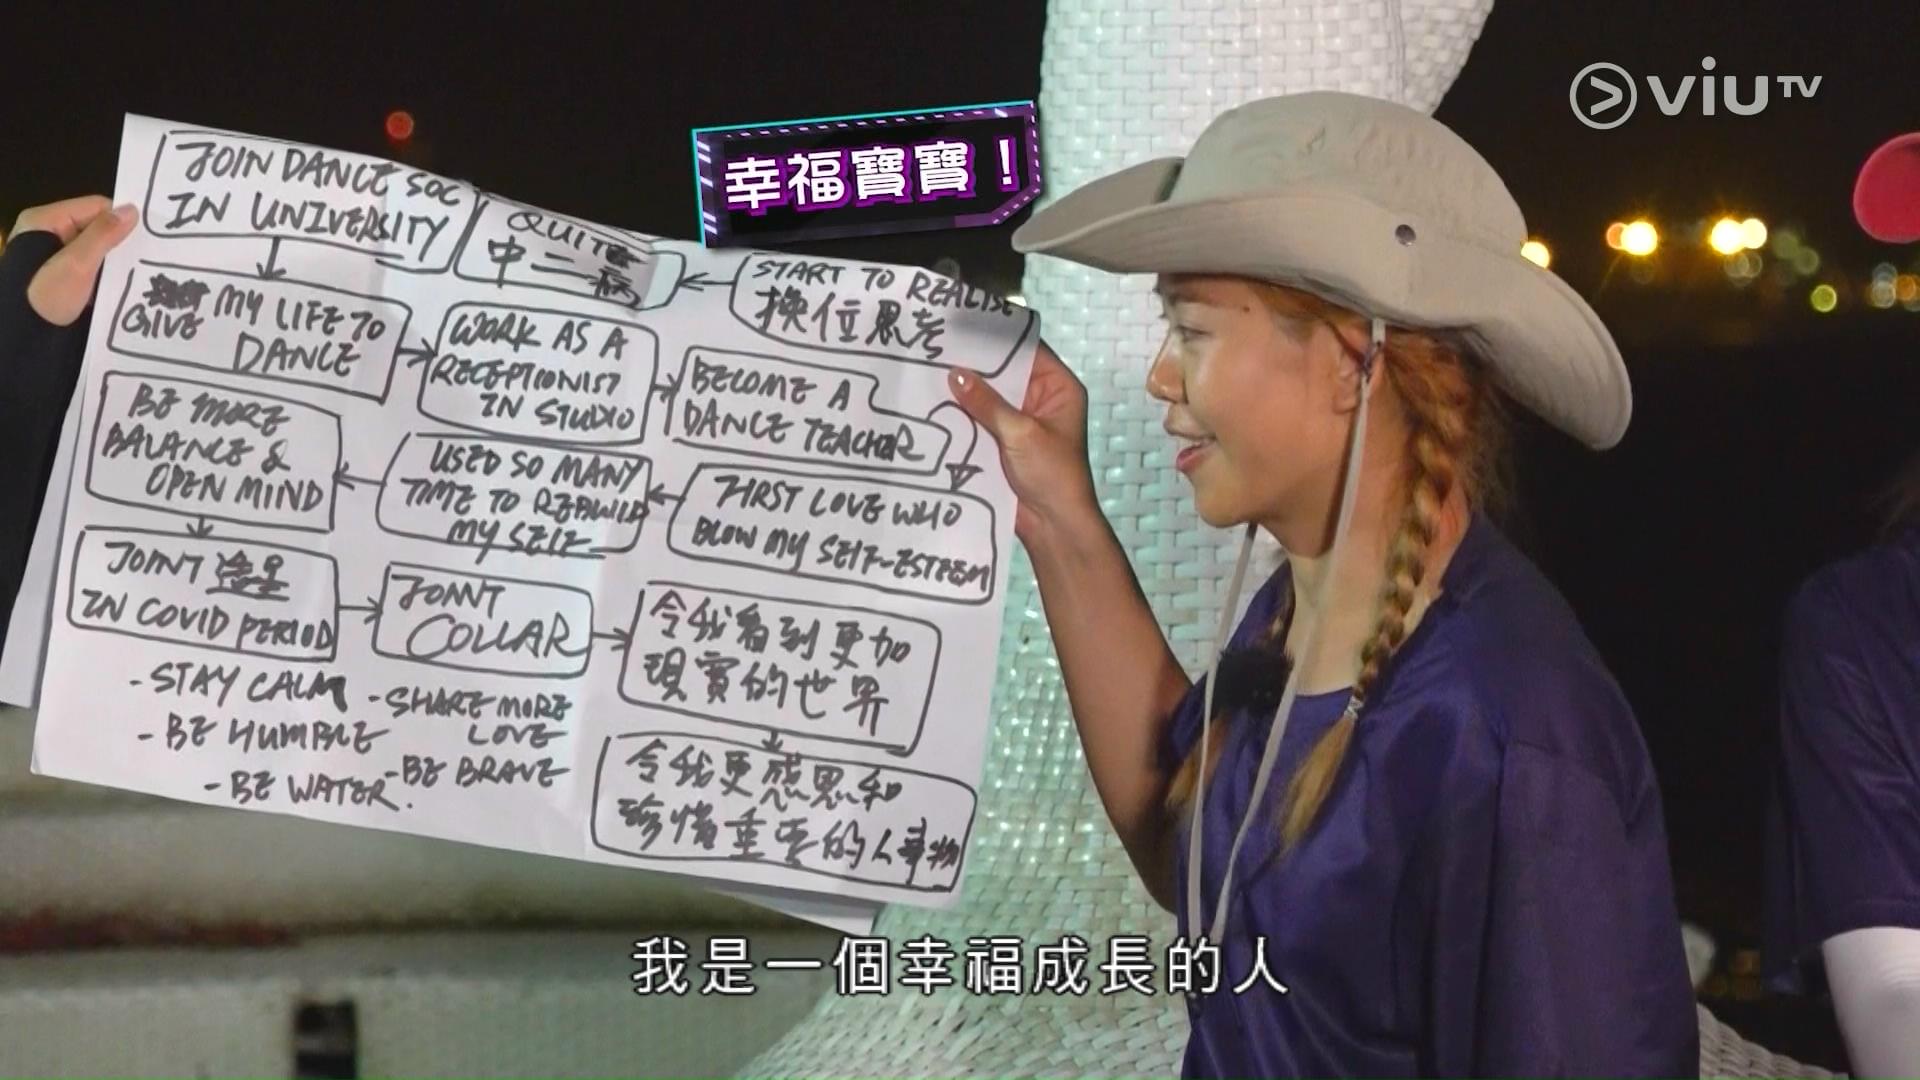 viuTV
幸福寶寶！
JOIN DANCE SOC
IN UNIVERSITY
QUITE
中二病
START TO REALISE
換位思考
GIVE MY LIFE TO
DANCE
WORK AS A
RECEPTIONIST
IN STUDIO
BECOME A
DANCE TEACHER
FIRST LOVE WHO
BLOW MY SELF-ESTEEM
USED SO MANY
TIME TO REBUILD
MY SELF
BE MORE
BALANCE &
OPEN MIIND
JOINT 造星
IN COVID PERIOD
JOINT
COLLAR
令我看到更加
現實的世界
令我更感恩和
珍惜重要的人事物
-STAY CALM
-SHARE MORE
LOVE
-BE HUMBLE
-BE BRAVE
-BE WATER.
我是一個幸福成長的人